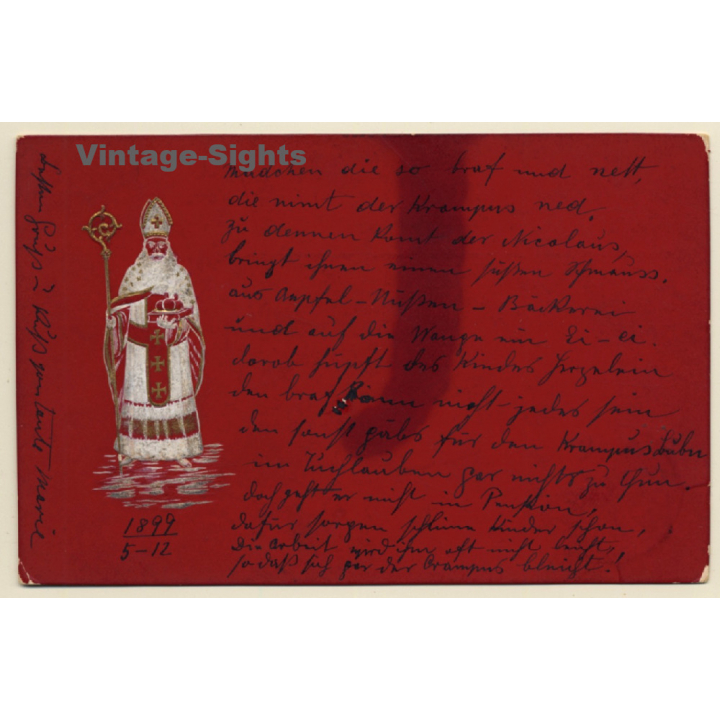 Vintage-Sights
Mädchen die so braf und nett,
die nimt der Krampus ned,
zu dennen komt der Nicolaus,
bringt ihnen einen süßen Schmauss.
aus Aepfel-Nüßen-Bäckerei
und auf die Wange ein Ei-ei.
darob hüpft des Kindes Herzelein
den braf kann nicht jedes sein
den sonst gäbs für den Krampusbubn
im Tuchlauben gar nichts zu thun.
doch geht er nicht in Pension,
dafür sorgen schlime Kinder schon,
die Arbeit wird ihm oft nicht leicht,
so daß sich gar der Crampus bleicht!
1899
5-12
Gruß u Kuß von tante Marie